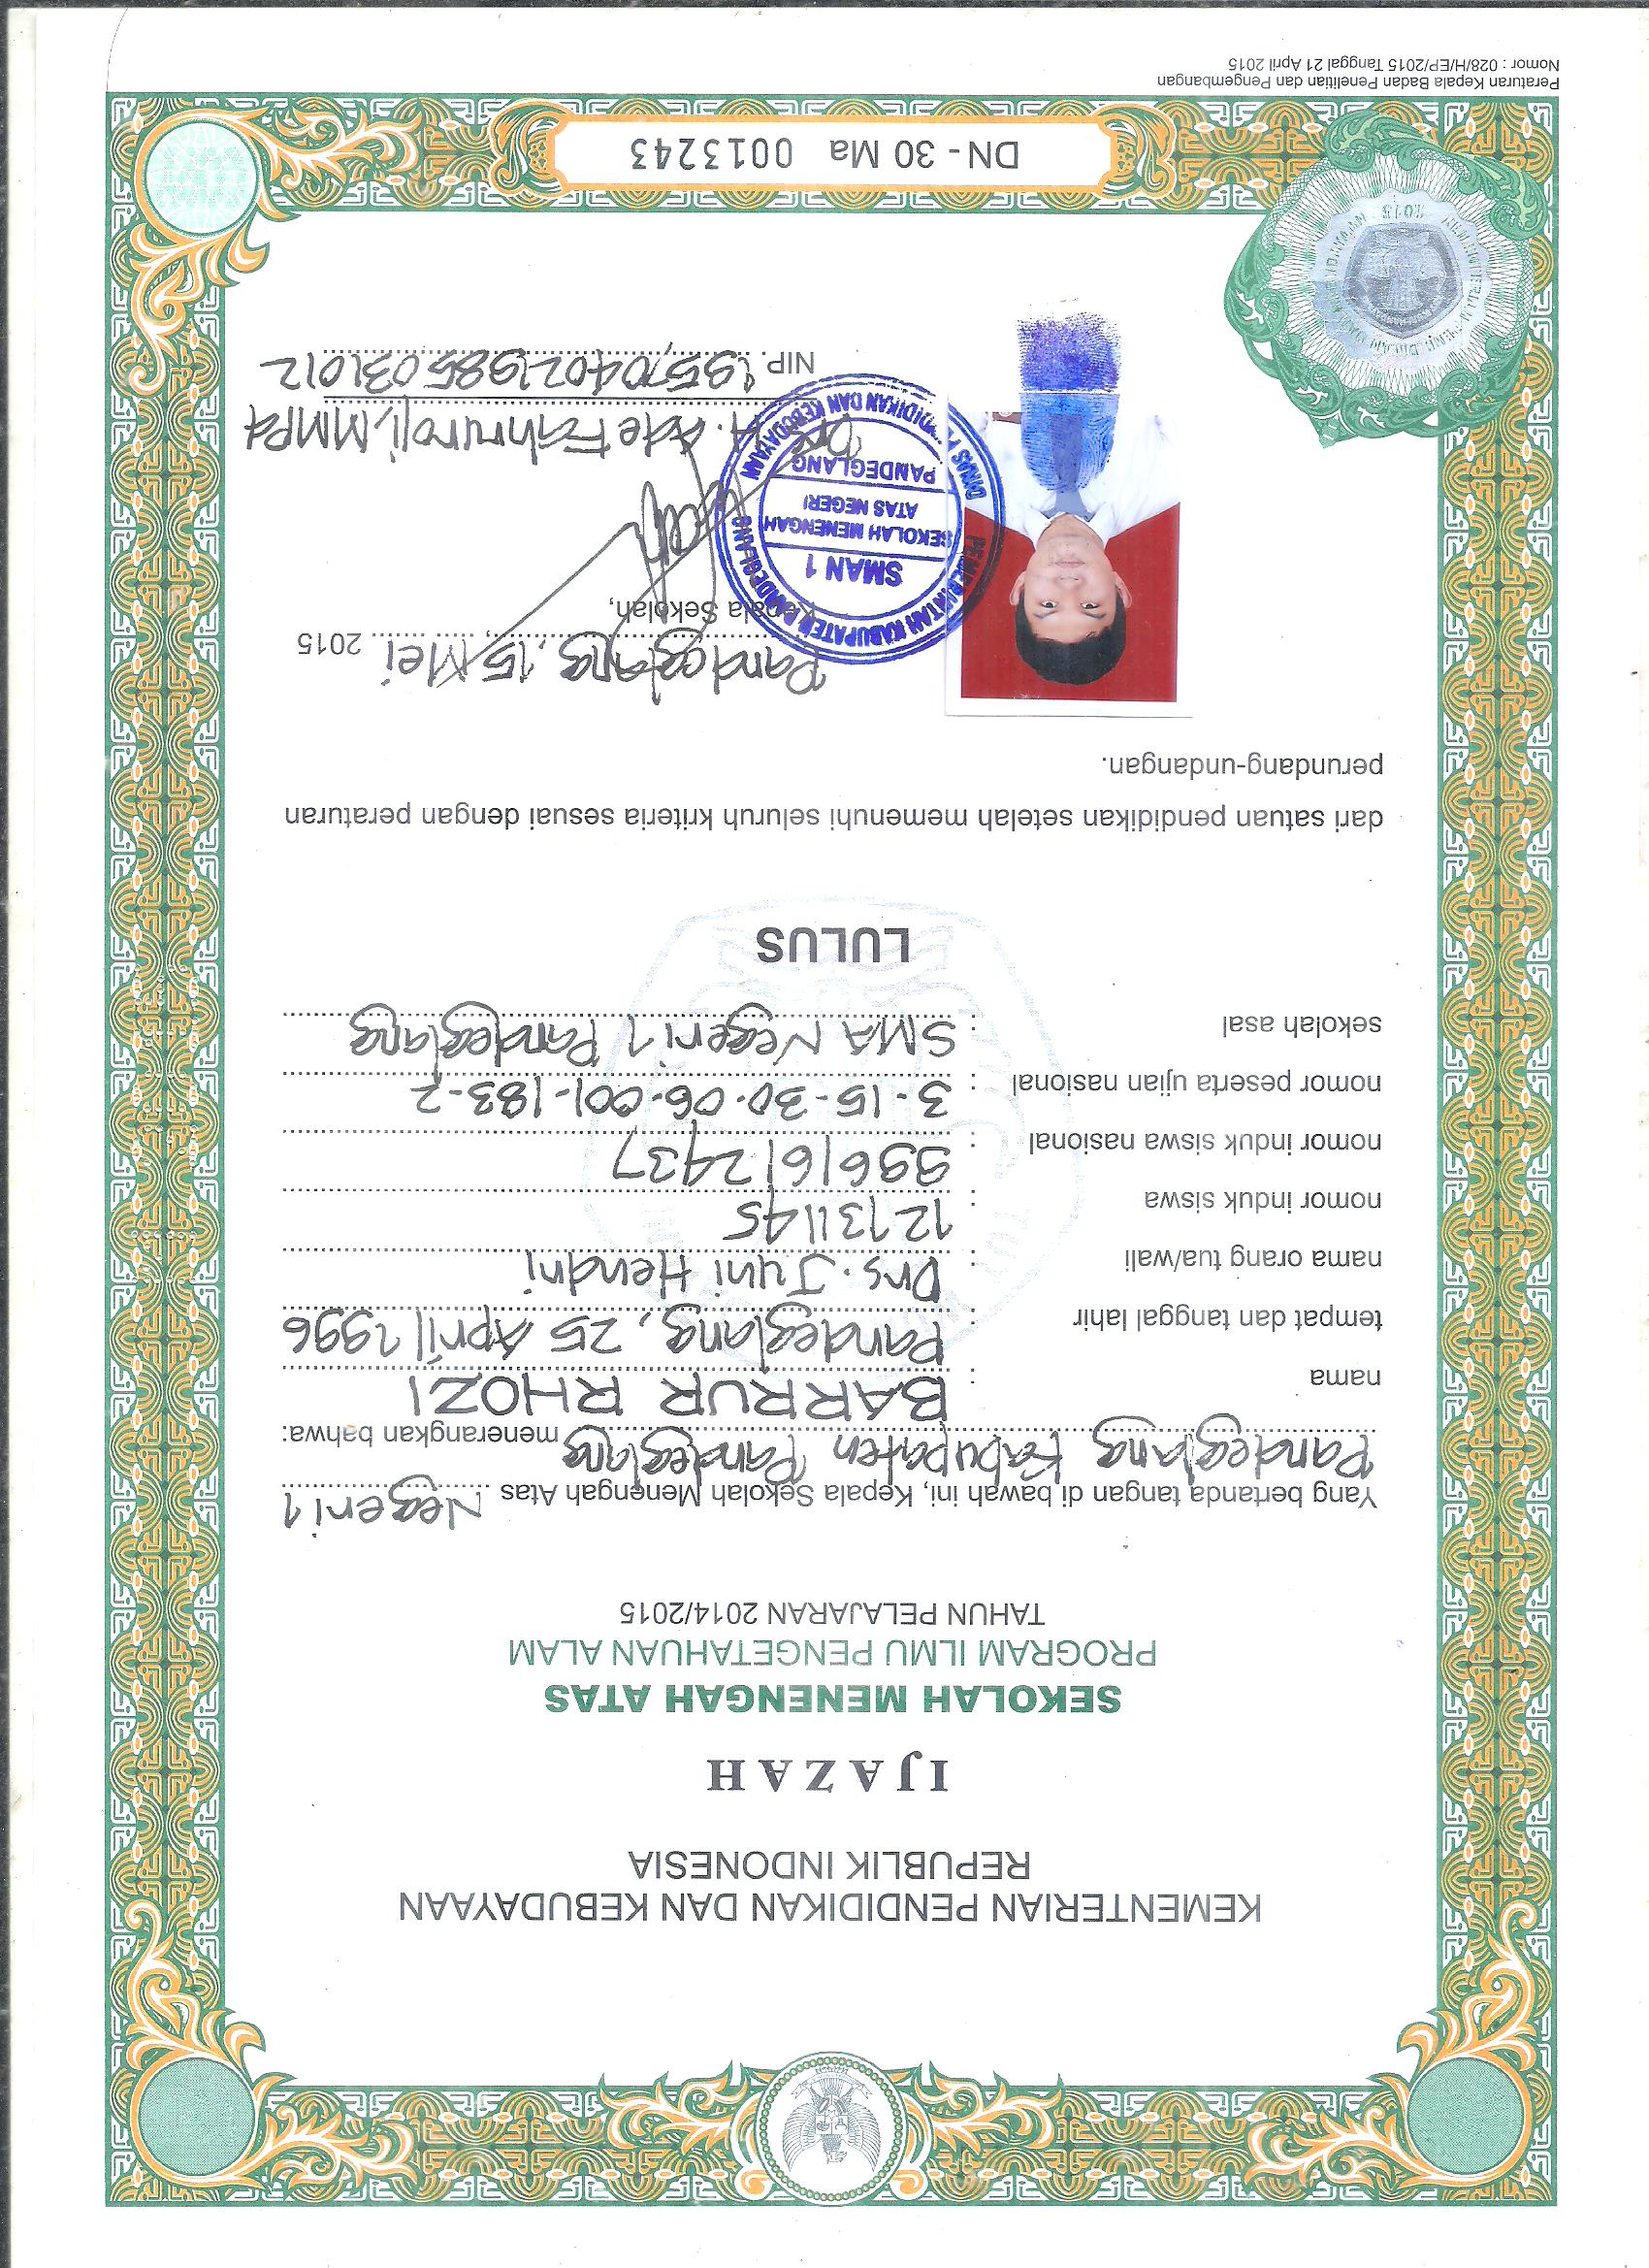 KEMENTERIAN PENDIDIKAN DAN KEBUDAYAAN
REPUBLIK INDONESIA
IJAZAH
SEKOLAH MENENGAH ATAS
PROGRAM ILMU PENGETAHUAN ALAM
TAHUN PELAJARAN 2014/2015
Yang bertanda tangan di bawah ini, Kepala Sekolah Menengah Atas Negeri 1
Pandeglang Kabupaten Pandeglang menerangkan bahwa:
nama : BARRUR RHOZI
tempat dan tanggal lahir : Pandeglang, 25 April 1996
nama orang tua/wali : Drs. Juni Hendri
nomor induk siswa : 12131145
nomor induk siswa nasional : 9961612437
nomor peserta ujian nasional : 3-15-30-06-001-183-2
sekolah asal : SMA Negeri 1 Pandeglang
LULUS
dari satuan pendidikan setelah memenuhi seluruh kriteria sesuai dengan peraturan
perundang-undangan.
Pandeglang, 15, Mei 2015
Kepala Sekolah,
PEMERINTAH KABUPATEN PANDEGLANG
SMAN 1
SEKOLAH MENENGAH
ATAS NEGERI
PANDEGLANG
DINAS PENDIDIKAN DAN KEBUDAYAAN
Drs. H. Ade Fahruroji, MMPd
NIP. 195704021985031012
2015
DN - 30 Ma 0013243
Peraturan Kepala Badan Penelitian dan Pengembangan
Nomor : 028/H/EP/2015 Tanggal 21 April 2015